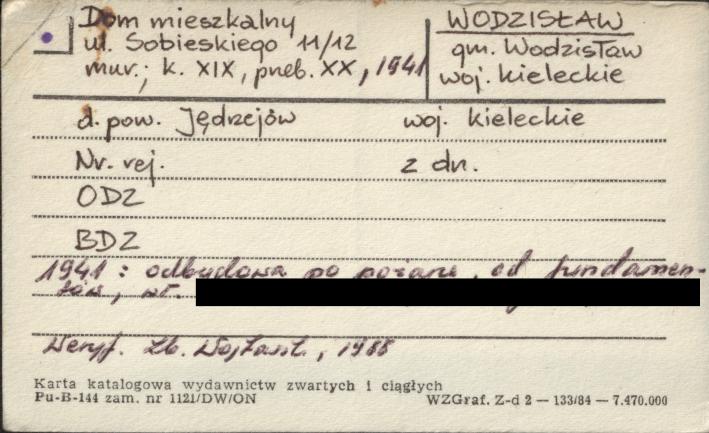 Dom mieszkalny
ul. Sobieskiego 11/12
mur., k. XIX, przeb. XX, 1941
WODZISŁAW
gm. Wodzisław
woj. kieleckie
d. pow. Jędrzejów woj. kieleckie
Nr. rej. z dn.
ODZ
BDZ
1941: odbudowa po pożarze, od fundamen-
tów, wł.
Weryf. Zb. , 1988
Karta katalogowa wydawnictw zwartych i ciągłych
Pu-B-144 zam. nr 1121/DW/ON WZGraf. Z-d 2 — 133/84 — 7.470.000